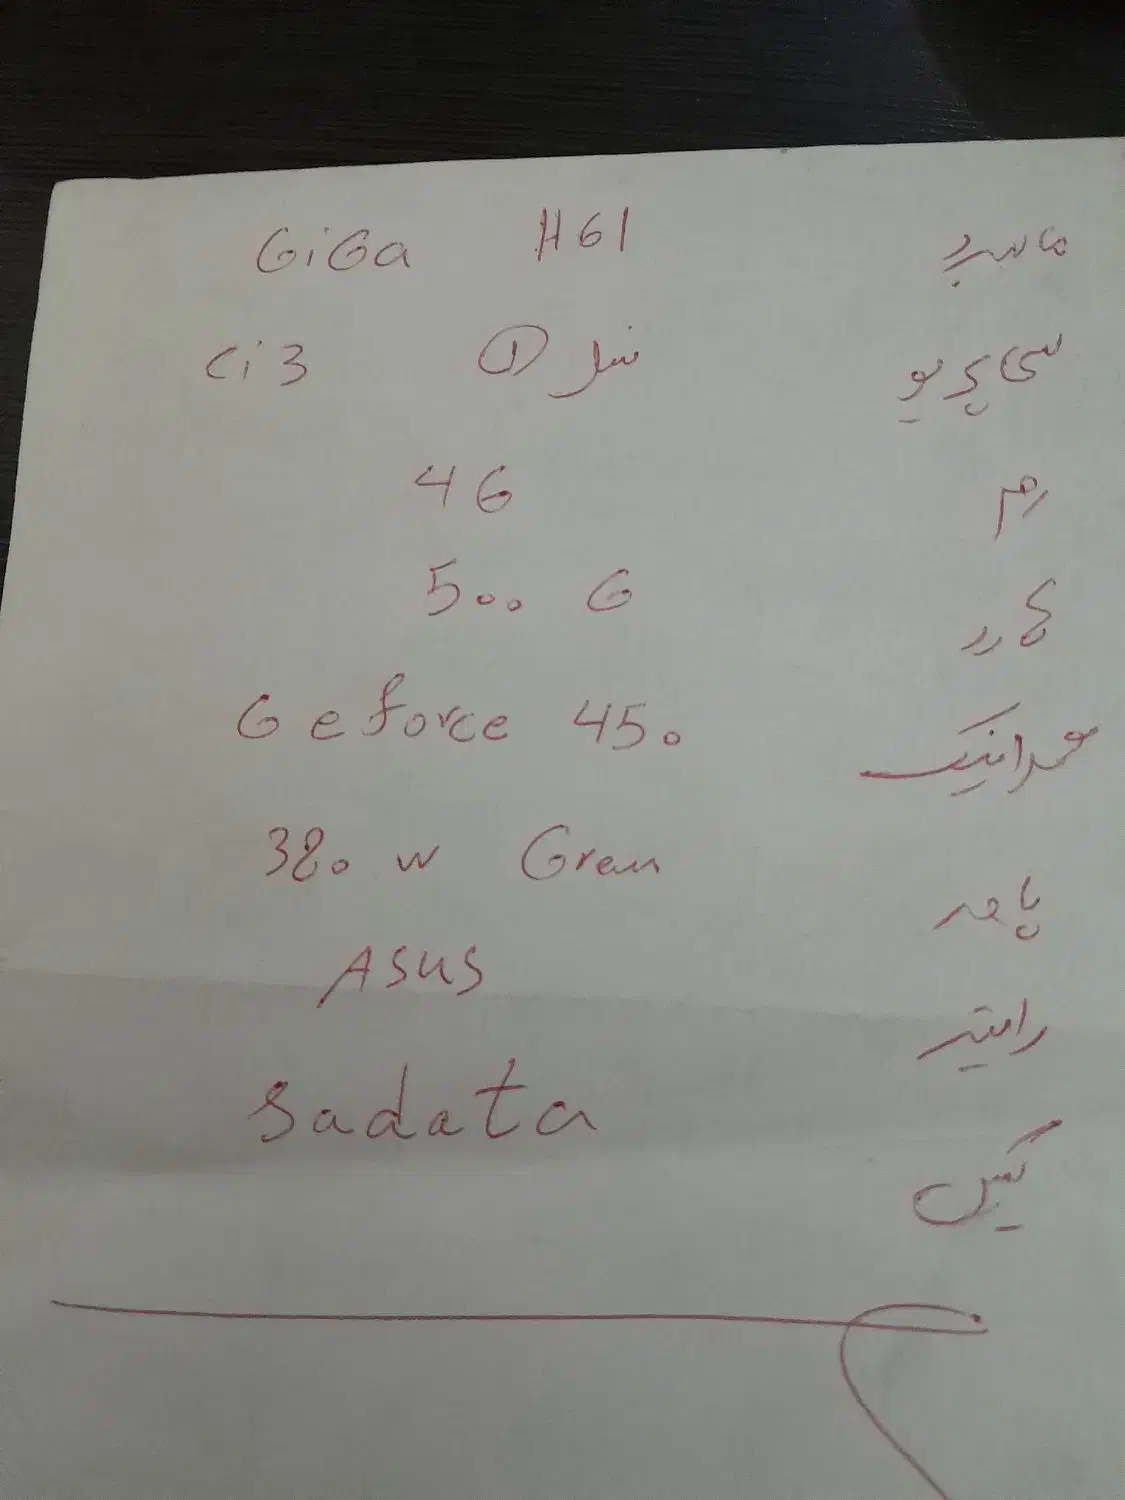 مادربرد H61 GiGa
سی پی یو نسل ① Ci3
رم 4G
هارد 500 G
گرافیک Geforce 450
پاور 380 w Green
رایتر ASUS
کیس Sadata